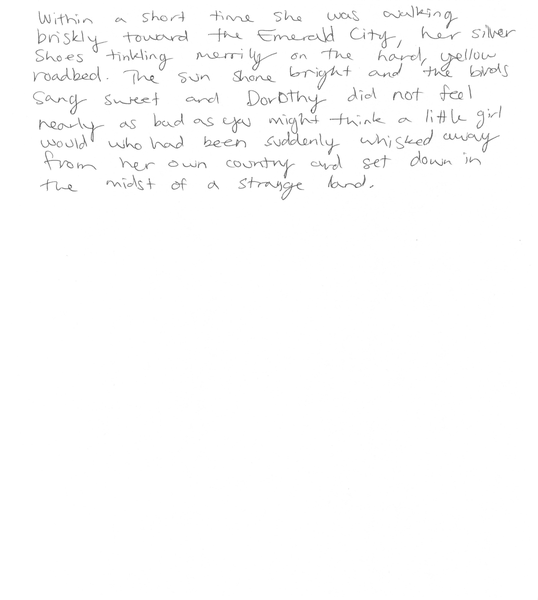 Within a short time she was walking
briskly toward the Emerald City, her silver
Shoes tinkling merrily on the hard, yellow
roadbed. The sun shone bright and the birds
sang sweet and Dorothy did not feel
nearly as bad as you might think a little girl
would who had been suddenly whisked away
from her own country and set down in
the midst of a strange land.